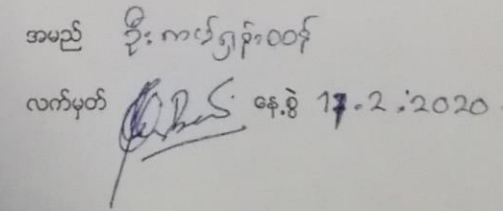 အမည် ဦးကပ်ရှန်းထန်
လက်မှတ် နေ့စွဲ 17.2.2020